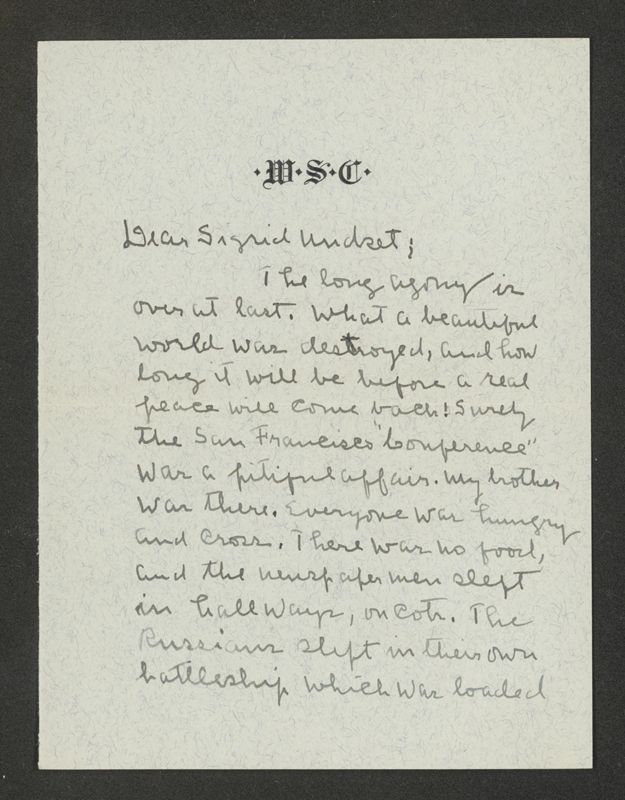 ·W·S·C·
Dear Sigrid Undset;
The long agony is
over at last. What a beautiful
world was destroyed, and how
long it will be before a real
peace will come back! Surely
the San Francisco "Conference"
was a pitiful affair. My brother
was there. Everyone was hungry
and cross. There was no food,
and the newspaper men slept
in hallways, on cots. The
Russians slept in their own
battleship which was loaded